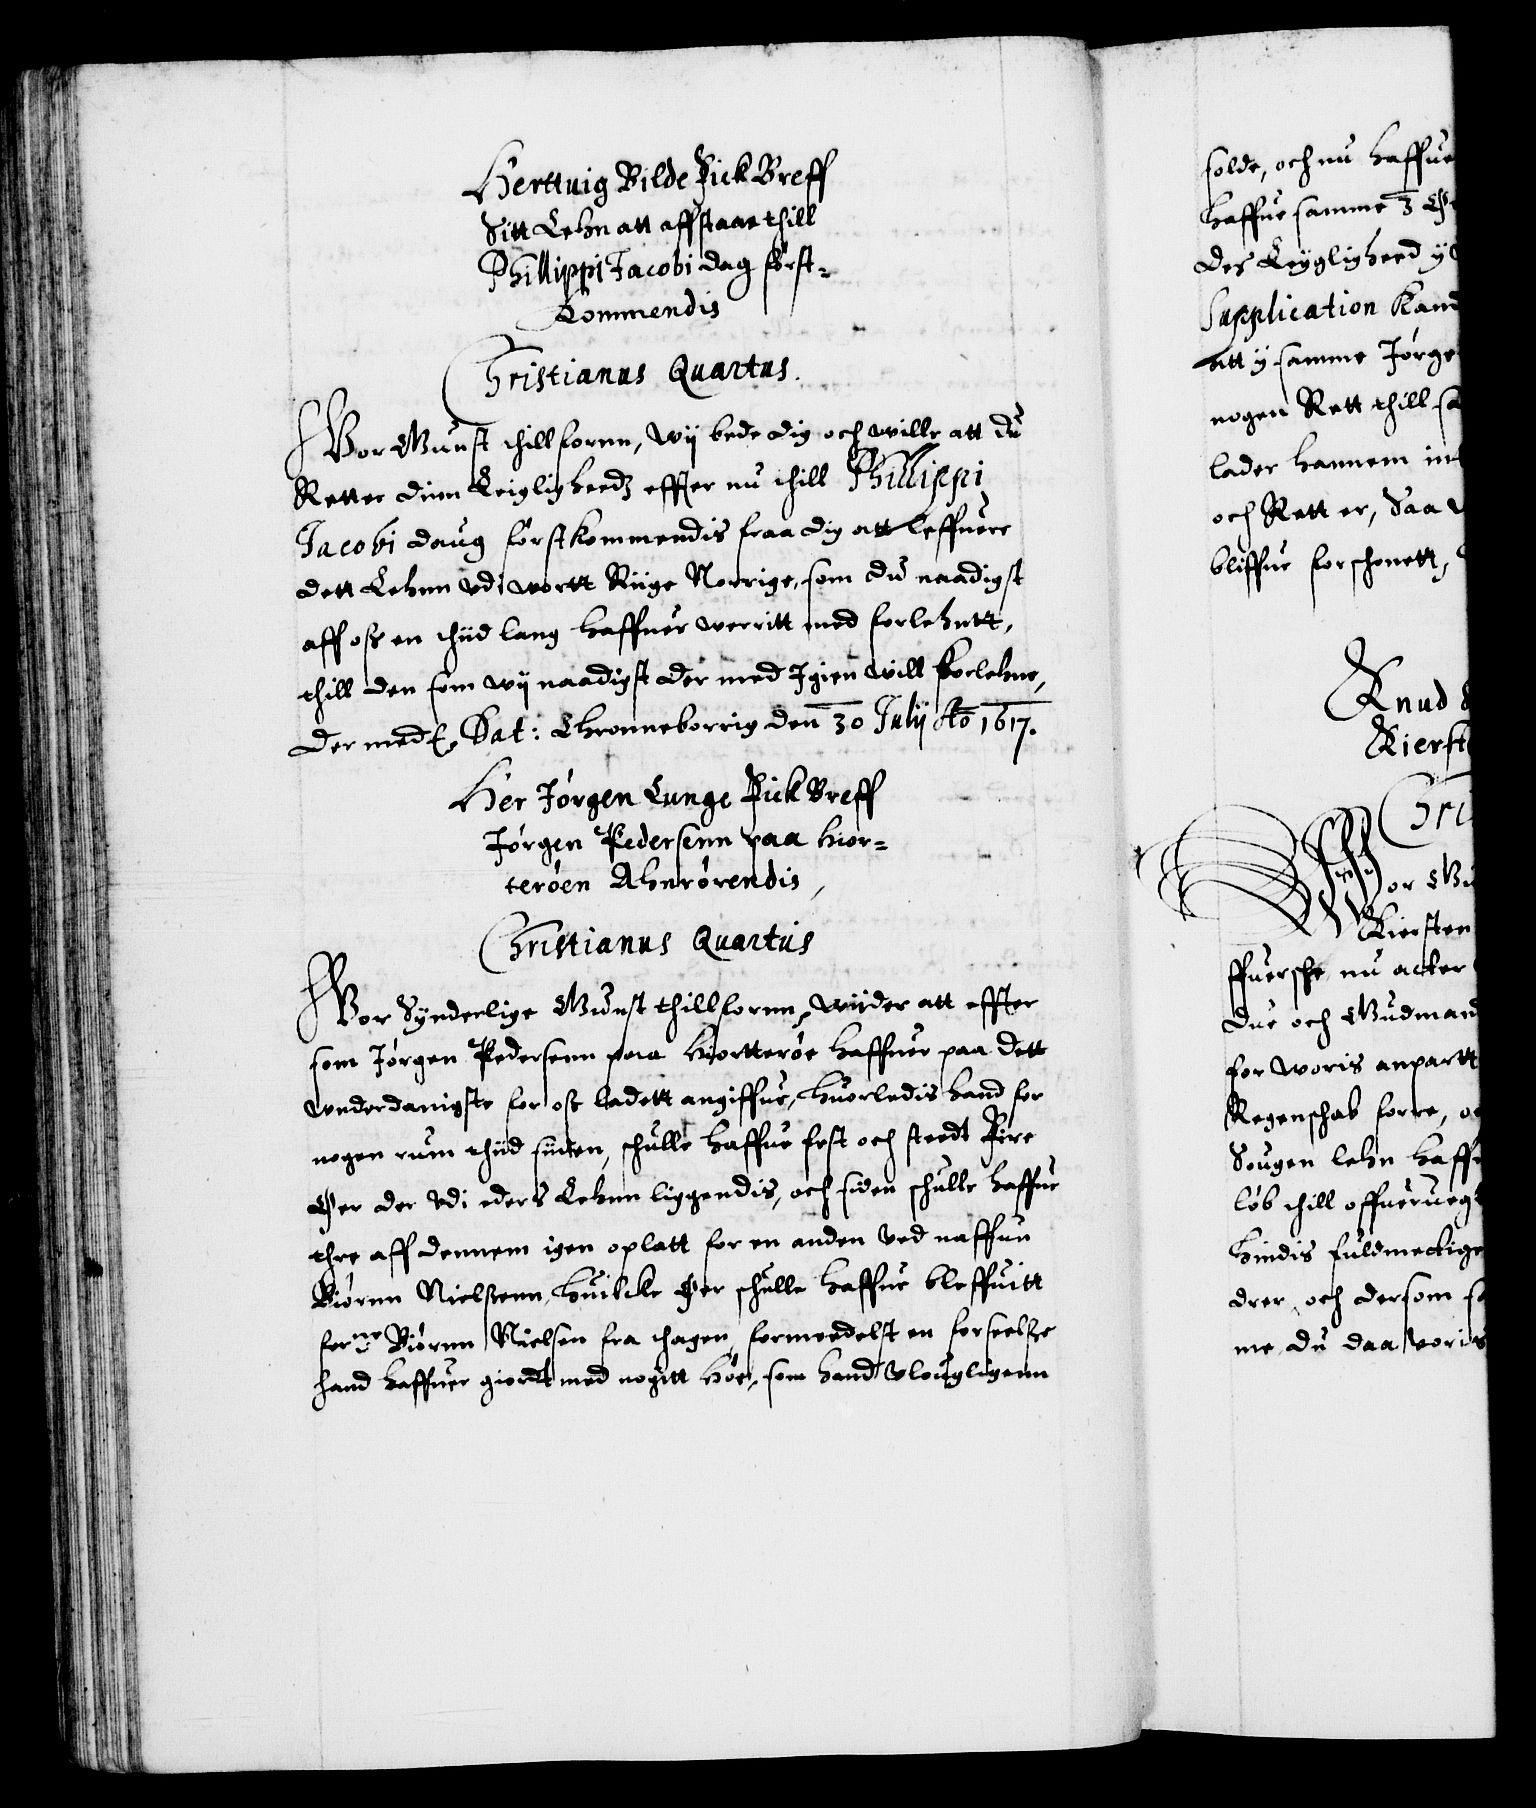 Herttuig Bilde Fick Breff
Sitt Lehn att affstaae thill
Phillippi Jacobi dag först-
Kommendis
Christianus Quartus.
Vor Gunst thillfornn, wij bede dig och wille att du
Retter dinn Leiglighedz effter nu thill Phillippi
Jacobi daug förstkommendis fraa dig att leffuere
dett Lehnn vdi wortt Riige Norrige, som du naadigst
aff oss en thiid lang haffuer werritt med forlehntt,
thill den som wij naadigst der med Igien will forlehne,
der med Dat: Chronneborrig den 30 Julij Ao 1617.
Her Jörgen Lunge Fick Breff
Jörgen Pedersenn paa Hior-
teröen Ahnrörendis,
Christianus Quartus
Vor Synderlige Gunst thillfornn, wiider att effter
som Jörgen Pedersenn paa Hiortteröe haffuer paa dett
vnderdanigste for oss ladett angiffue, huorledis hand for
nogen rum thiid siiden, schulle haffue fest och steedt Fire
Öer der vdi eders Lehnn liggendis, och siden schulle haffue
thre aff dennem igen oplatt for en anden ved naffun
Biörnn Nielssenn, huilcke Öer schulle haffue bleffuitt
forne Biörnn Nielsen fra thagen, formeedelst en forseelsse
hand haffuer giordt med nogitt Höe, som hand vlougligenn
solde, och nu haffue
haffue samme 3 Ö
des Leygligheed y
Supplication Kand
att y samme Jörge
nogen Rett thill sa
lader hannem in
och Rett er, Saa
bliffue forschonett,
Knud
Kierst
Chri
Vor Gu
Kiersten
ffuersche nu acter
due och Gudmand
for woris anpartt
Regenschab forre, oc
Sougen lehn haffu
löb thill offueruegt
hindis fuldmectige
drer, och dersom so
me du daa voris